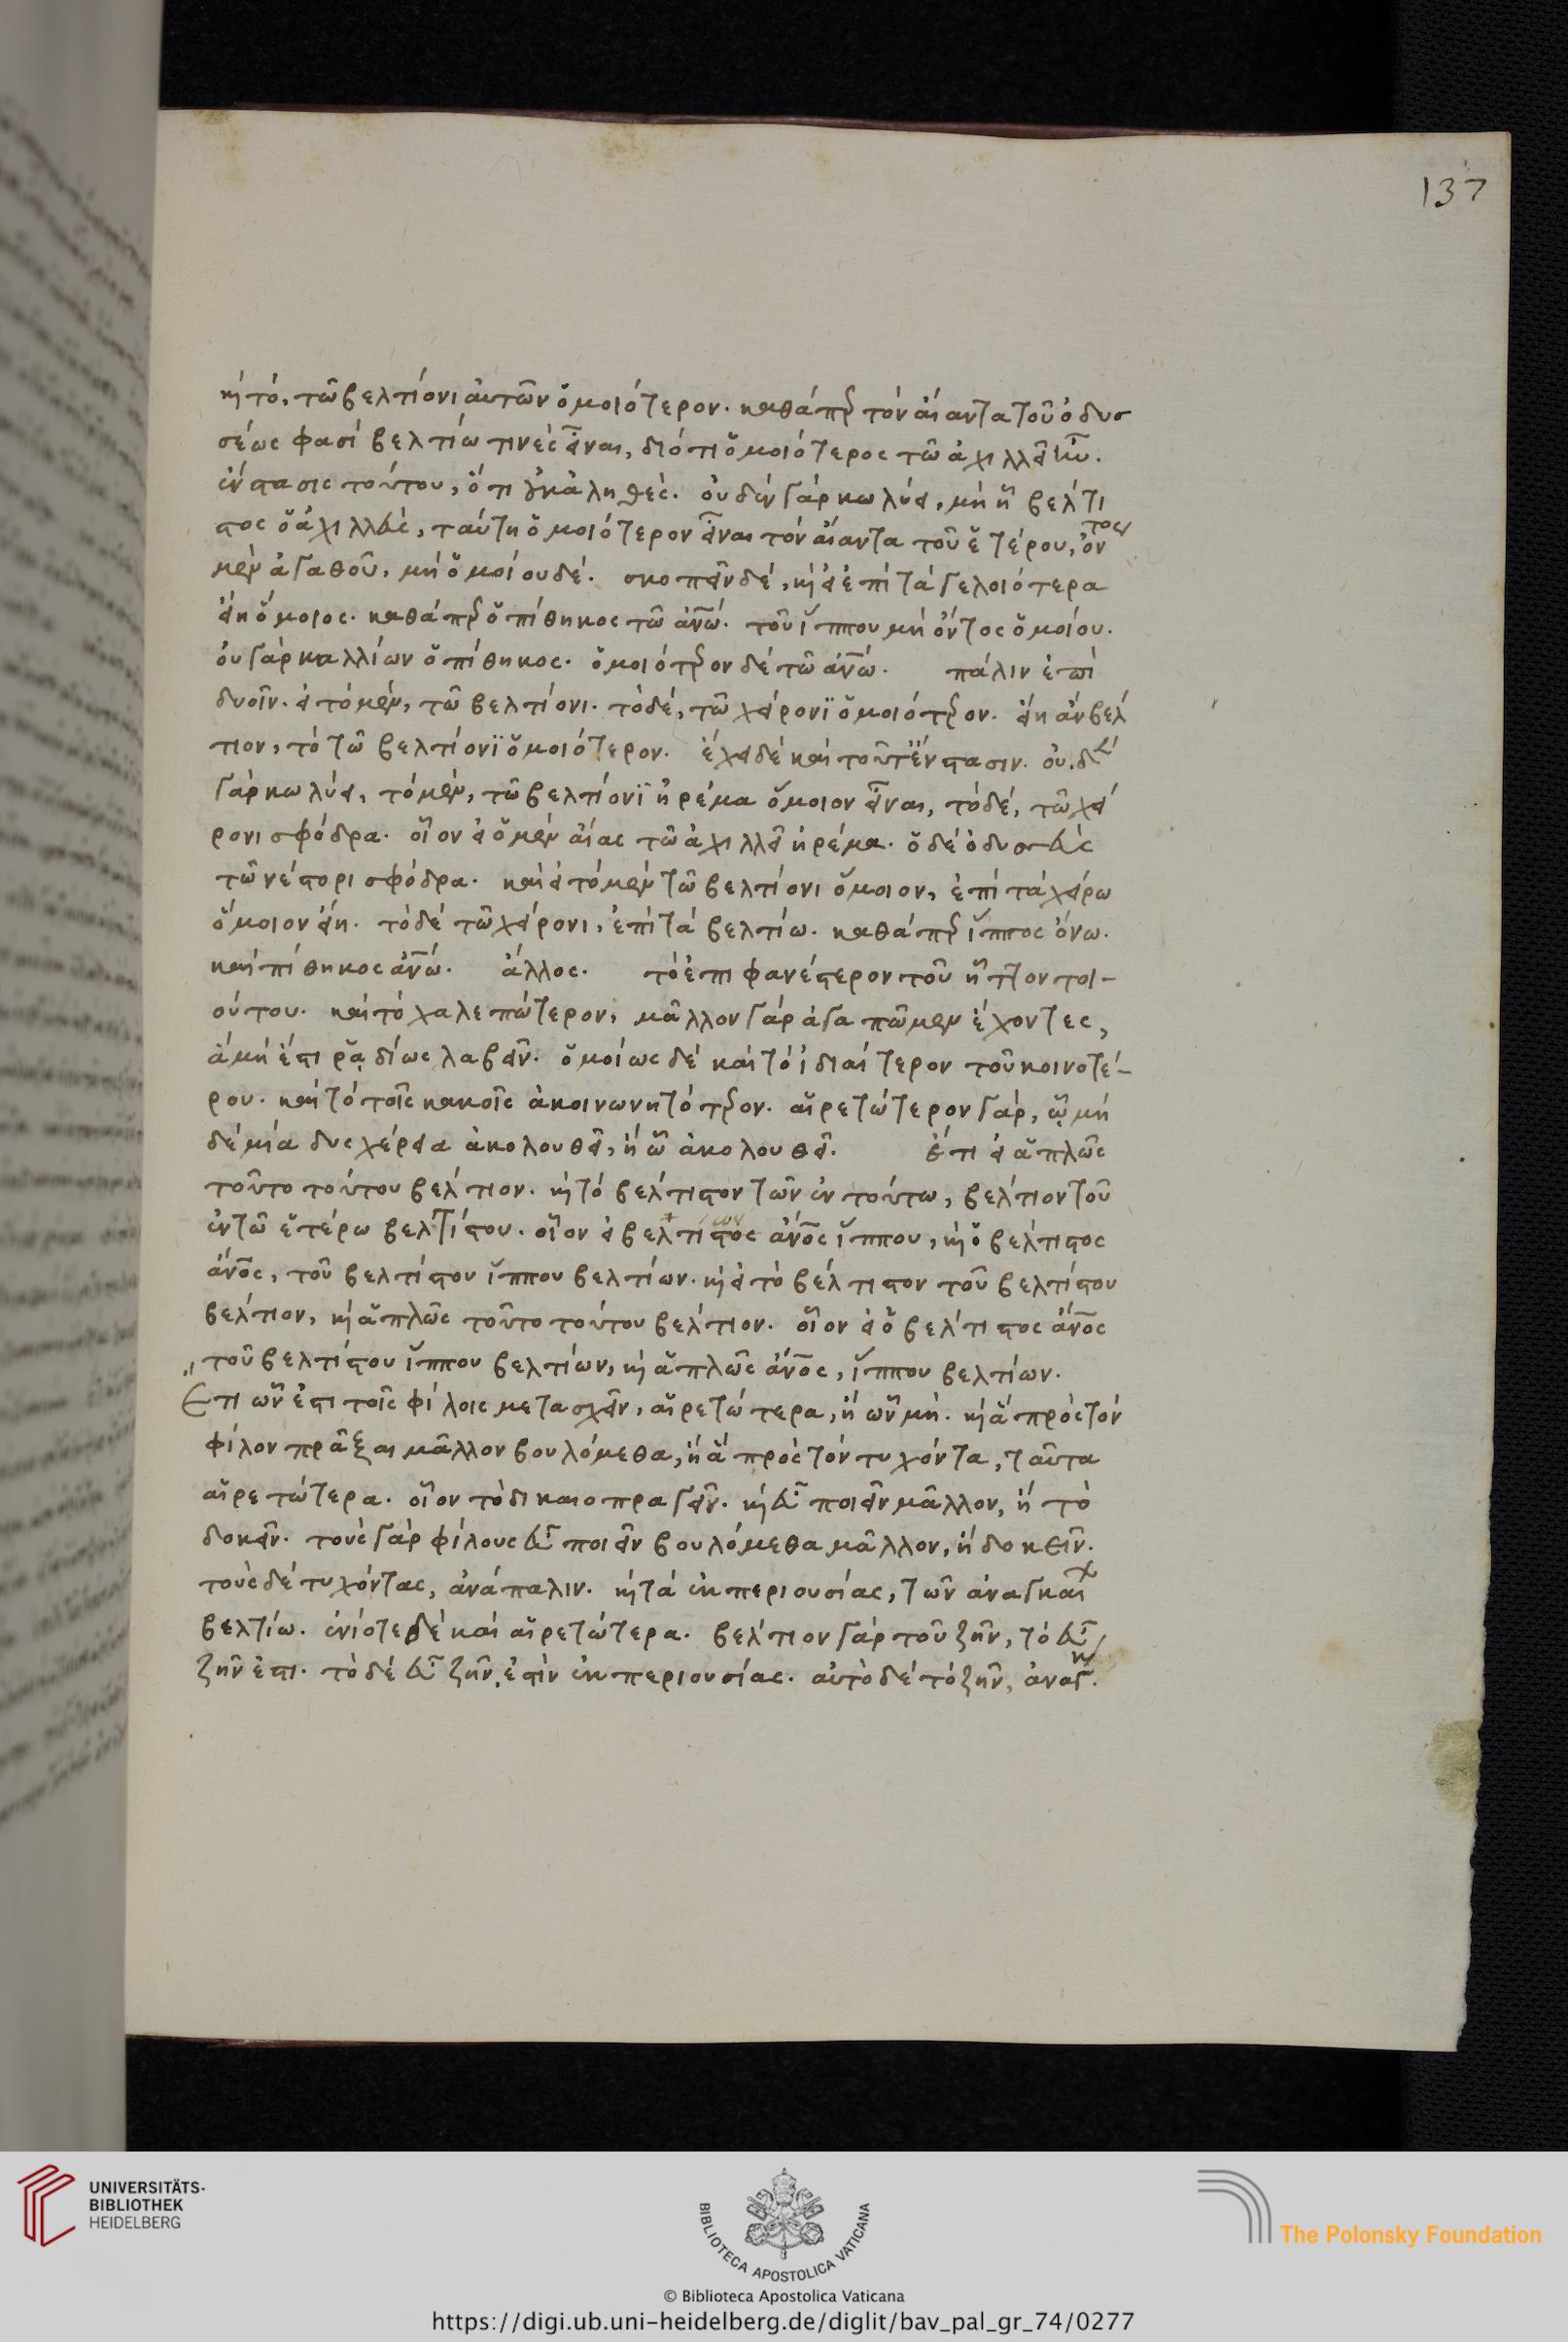 137
κὶ τό, τῶ βελτίονι ἀυτῶν ὅμοιότερον. καθάπερ τόν αἴαντα τοῦ ὀδυσ
σέως φασί βελτίω τινὲς εἶναι, διότι ὅμοιότερος τῶ ἀχιλλεῖ ἦν.
ἔνστασις τούτου, ὅτι οὐκ ἀληθές. οὐδέν γάρ κωλύει, μὴ ᾗ βέλτι
στος ὁ ἀχιλλεύς, ταύτη ὅμοιότερον εἶναι τόν αἴαντα τοῦ ἑτέρου, ὄντος
μέν ἀγαθοῦ, μὴ ὅμοίου δέ. σκοπεῖν δέ, κὶ εἰ ἐπί τά γελοιότερα
εἴη ὅμοιος. καθάπερ ὁ πίθηκος τῶ ἀνῶ. τοῦ ἵππου μὴ ὄντος ὅμοίου.
ὀυ γάρ καλλίων ὁ πίθηκος. ὅμοιότερον δέ τῶ ἀνῶ. πάλιν ἐπὶ
δυοῖν. εἰ τό μέν, τῶ βελτίονι. τὸ δέ, τῶ χείρονϊ ὅμοιότερον. εἴη ἄν βέλ
τιον, τὸ τῶ βελτίονϊ ὅμοιότερον. ἔχει δέ καὶ τοῦτ' ἔνστασιν. οὐδέν
γάρ κωλύει, τό μέν, τῶ βελτίονϊ ἠρέμα ὅμοιον εἶναι, τὸ δέ, τῶ χεί
ρονι σφόδρα. οἷον εἰ ὁ μέν αἴας τῶ ἀχιλλεῖ ἠρέμα. ὁ δέ ὀδυσσεύς
τῶ νέστορι σφόδρα. καὶ εἰ τό μέν τῶ βελτίονι ὅμοιον, ἐπί τά χείρω
ὅμοιον εἴη. τὸ δέ τῶ χείρονι, ἐπὶ τά βελτίω. καθάπερ ἵππος ὄνω.
καὶ πίθηκος ἀνῶ. ἄλλος. τὸ ἐπιφανέστερον τοῦ ἧττον τοι-
ούτου. καὶ τό χαλεπώτερον, μᾶλλον γάρ ἀγαπῶμεν ἔχοντες,
ἅ μὴ ἔστι ῥᾳδίως λαβεῖν. ὅμοίως δέ καὶ τό ἰδιαίτερον τοῦ κοινοτέ-
ρου. καὶ τό τοῖς κακοῖς ἀκοινωνητότερον. αἱρετώτερον γάρ, ᾧ μη
δέμία δυσχέρεια ἀκολουθεῖ, ἤ ᾧ ἀκολουθεῖ. ἔτι εἰ ἁπλῶς
τοῦτο τούτου βέλτιον. κὶ τό βέλτιστον τῶν ἐν τούτω, βέλτιον τοῦ
ἐν τῶ ἑτέρω βελτίστου. οἷον εἰ βέλτιστος ἄνος ἵππου, κὶ ὁ βέλτιστος
ἄνος, τοῦ βελτίστου ἵππου βελτίων. κὶ εἰ τὸ βέλτιστον τοῦ βελτίστου
βέλτιον, κὶ ἁπλῶς τοῦτο τούτου βέλτιον. οἷον εἰ ὁ βέλτιστος ἄνος
τοῦ βελτίστου ἵππου βελτίων, κὶ ἁπλῶς ἄνος, ἵππου βελτίων.
Ετι ὧν ἔστι τοῖς φίλοις μετασχεῖν, αἱρετώτερα, ἤ ὧν μὴ. κὶ ἅ πρὸς τόν
φίλον πρᾶξαι μᾶλλον βουλόμεθα, ἤ ἅ πρὸς τόν τυχόντα, ταῦτα
αἱρετώτερα. οἷον τὸ δικαιοπραγεῖν. κὶ εὖ ποιεῖν μᾶλλον, ἤ τὸ
δοκεῖν. τοὺς γάρ φίλους εὖ ποιεῖν βουλόμεθα μᾶλλον, ἤ δοκεῖν.
τοὺς δέ τυχόντας, ἀνάπαλιν. κὶ τά ἐκ περιουσίας, τῶν ἀναγκαίων
βελτίω. ἐνίοτε δέ καὶ αἱρετώτερα. βέλτιον γάρ τοῦ ζῆν, τό εὖ
ζῆν ἐστι. τὸ δέ εὖ ζῆν, ἐστὶν ἐκ περιουσίας. αὐτὸ δέ τό ζῆν, ἀναγκ.
UNIVERSITÄTS-
BIBLIOTHEK
HEIDELBERG
BIBLIOTECA APOSTOLICA VATICANA
The Polonsky Foundation
© Biblioteca Apostolica Vaticana
https://digi.ub.uni-heidelberg.de/diglit/bav_pal_gr_74/0277